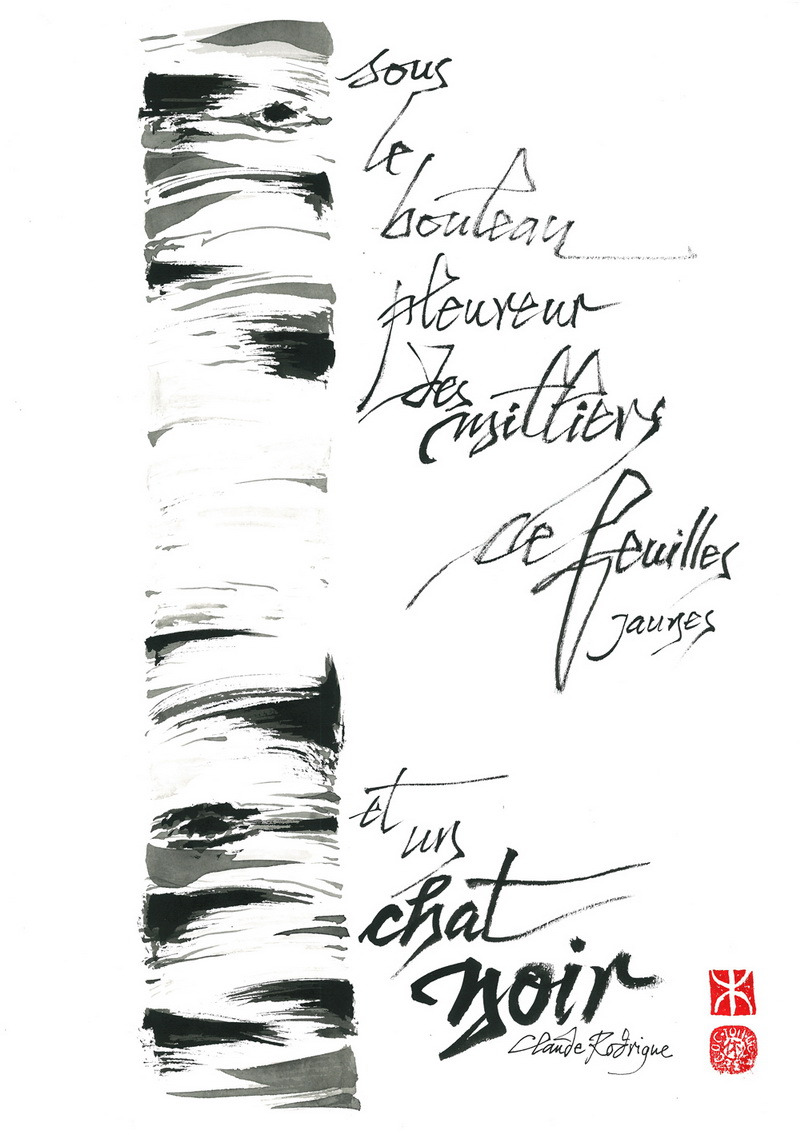 sous
le
bouleau
pleureur
des
milliers
de feuilles
jaunes
et
un
chat
noir
Claude Rodrigue